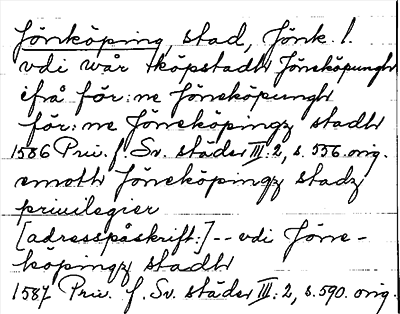 Jönköping, stad, Jönk. l.
vdi wår köpstadh Jöneköpungh
ifrå för:ne Jöneköpungh
för:ne Jöneköpingz stadh
1586 Priv. f. Sv. städer III:2, s. 556. orig.
emoth Jöneköpingz stadz
privilegier
[adresspåskrift:] -- vdi Jöne-
köpingz stadh
1587 Priv. f. Sv. städer III:2, s. 590. orig.